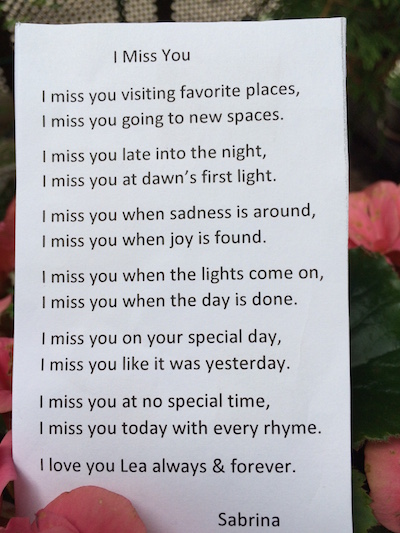 I Miss You
I miss you visiting favorite places,
I miss you going to new spaces.
I miss you late into the night,
I miss you at dawn’s first light.
I miss you when sadness is around,
I miss you when joy is found.
I miss you when the lights come on,
I miss you when the day is done.
I miss you on your special day,
I miss you like it was yesterday.
I miss you at no special time,
I miss you today with every rhyme.
I love you Lea always & forever.
Sabrina